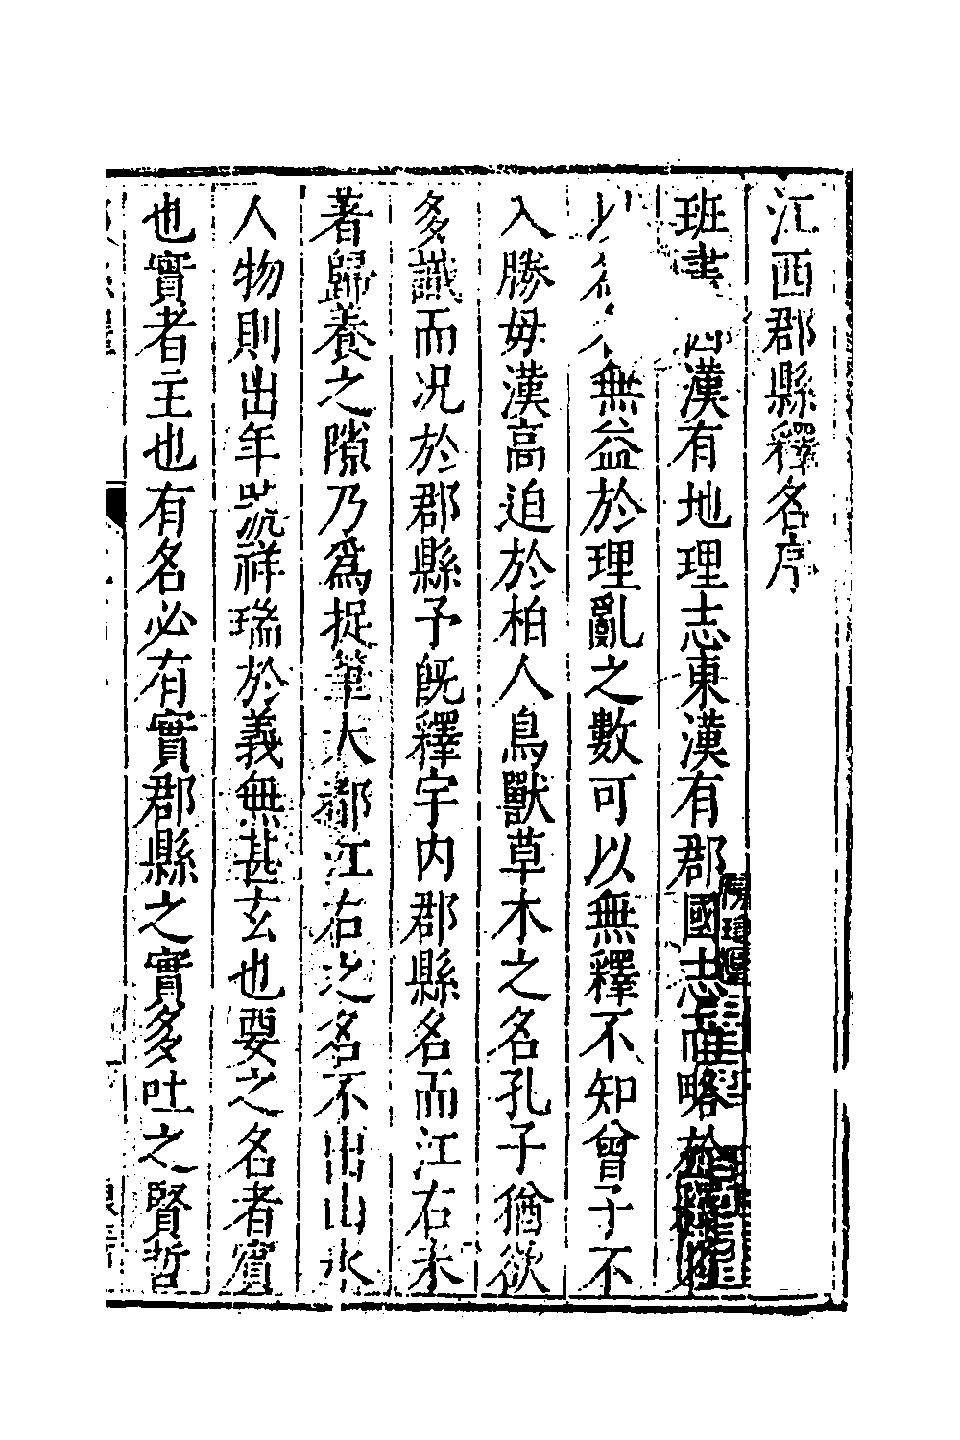 江西郡縣釋名序
班書 漢有地理志東漢有郡國志而略於釋
以名 無益於理亂之數可以無釋不知曾子不
入勝毋漢高迫於柏人鳥獸草木之名孔子猶欲
多識而况於郡縣予旣釋宇内郡縣名而江右未
著歸養之隙乃爲捉筆大都江右之名不出山水
人物則出年號祥瑞於義無甚玄也要之名者賓
也實者主也有名必有實郡縣之實多吐之賢哲